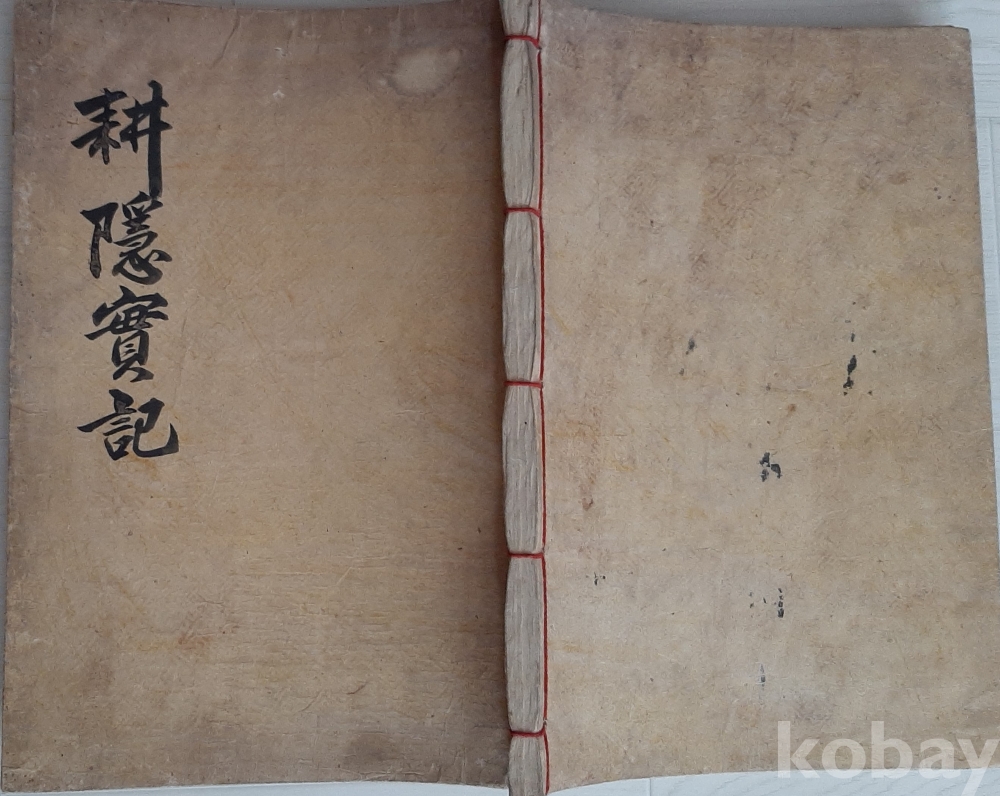 耕隱實記
kobay